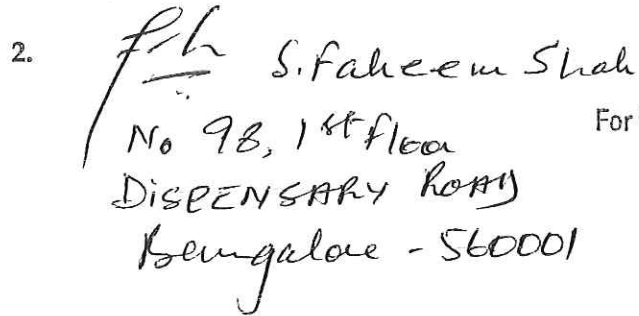 2. S. Faheem Shah
No 98, 1st floor For
DISPENSARY ROAD
Bengalore - 560001